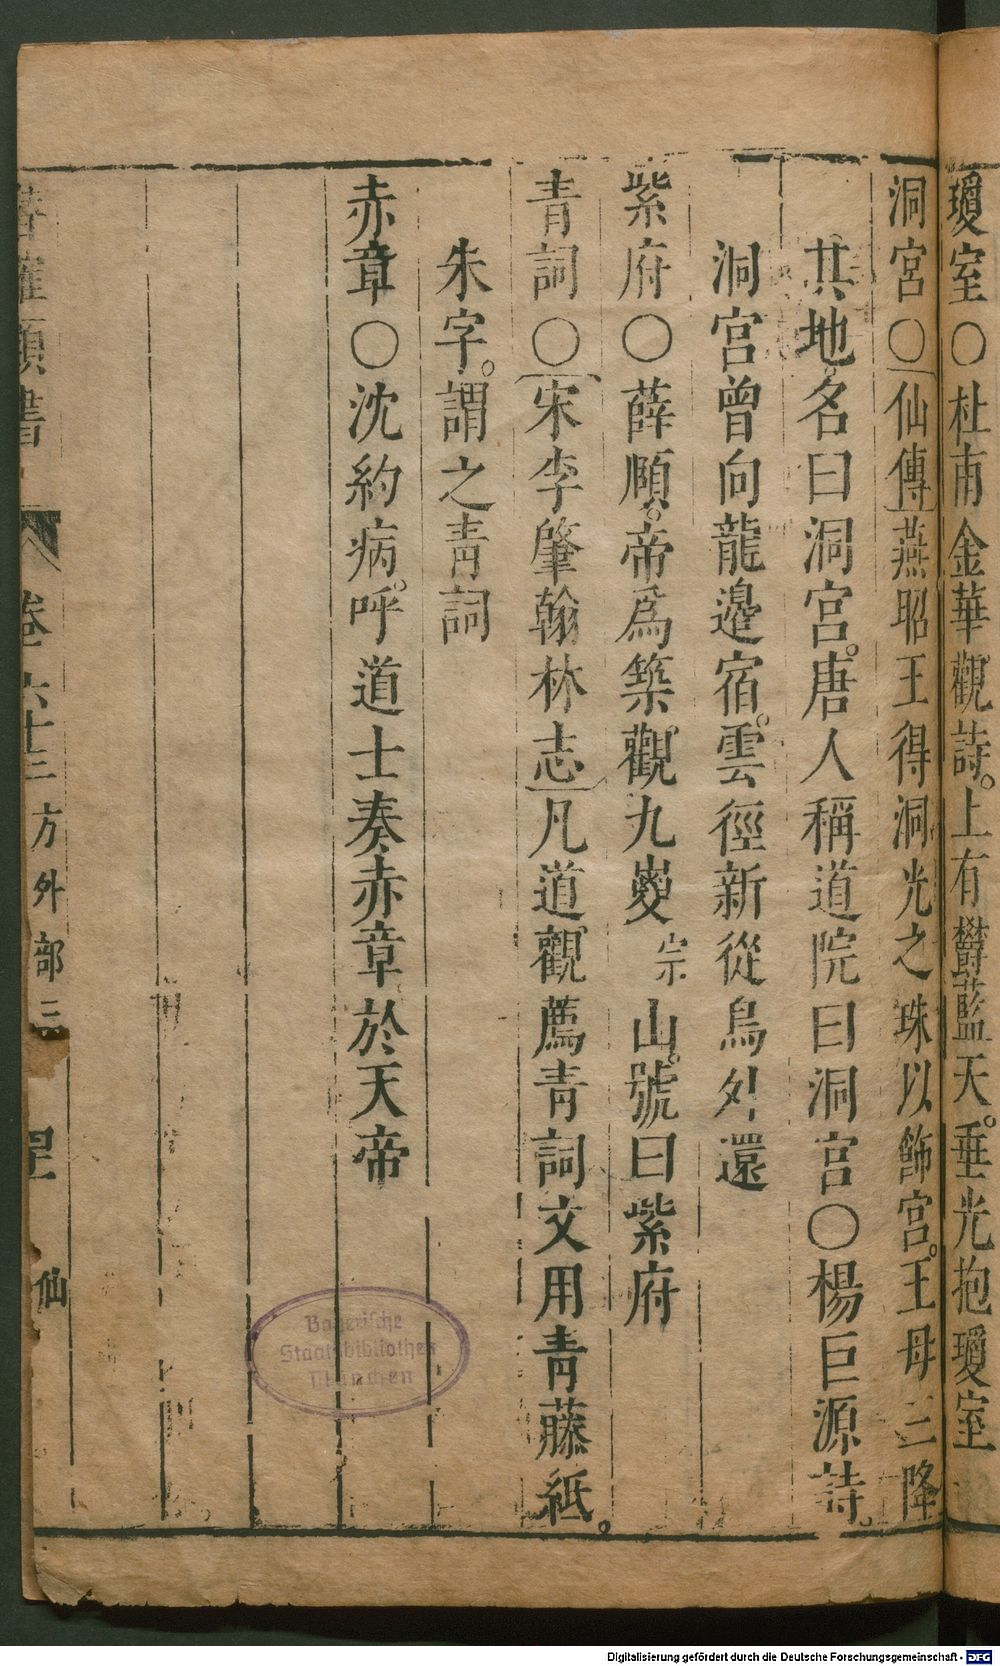 瓊室○杜甫金華觀詩。上有欝藍天。垂光抱瓊室
洞宮○仙傳燕昭王得洞光之珠以飾宮。王母三降
其地。名曰洞宮。唐人稱道院曰洞宮○楊巨源詩。
洞宮曾向龍邊宿。雲徑新從鳥外還
紫府○薛頤。帝爲築觀九嵏宗山。號曰紫府
青詞○宋李肇翰林志凡道觀薦青詞文用青藤紙。
朱字。謂之青詞
赤章○沈約病。呼道士奏赤章於天帝
類書
卷六十三 方外部三
仙
Bayerische
Staatsbibliothek
München
Digitalisierung gefördert durch die Deutsche Forschungsgemeinschaft - DFG